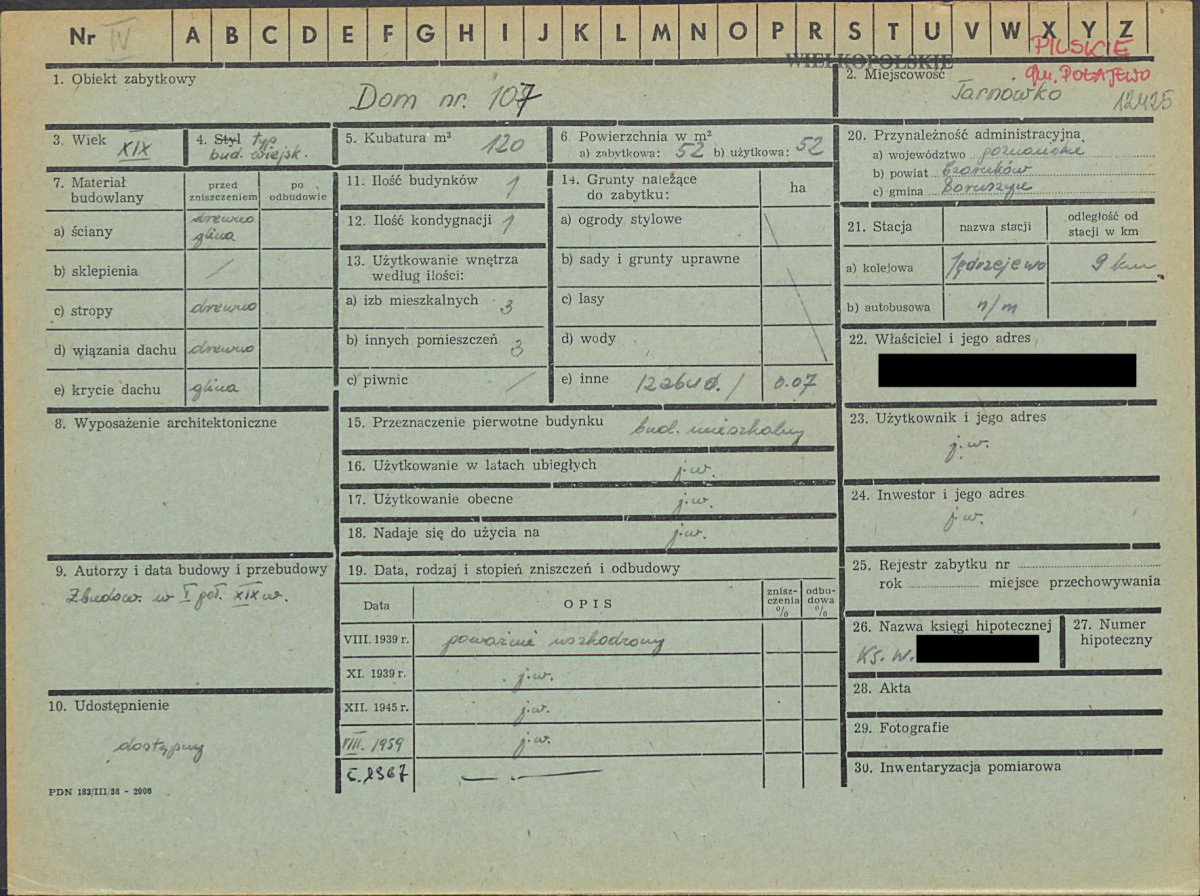 Nr IV A B C D E F G H I J K L M N O P R S T U V W X Y Z
WIELKOPOLSKIE
PILSKIE
gm. POŁAJEWO
1. Obiekt zabytkowy
Dom nr. 107
2. Miejscowość
Tarnówko
12425
3. Wiek XIX
4. Styl typ
bud. wiejsk.
5. Kubatura m³ 120
6 Powierzchnia w m²
a) zabytkowa: 52 b) użytkowa: 52
7. Materiał budowlany
przed zniszczeniem
po odbudowie
a) ściany drewno
glina
b) sklepienia /
c) stropy drewno
d) wiązania dachu drewno
e) krycie dachu glina
8. Wyposażenie architektoniczne
9. Autorzy i data budowy i przebudowy
Zbudow. w I poł. XIX w.
10. Udostępnienie
dostępny
PDN 183/III/58 - 2000
11. Ilość budynków 1
12. Ilość kondygnacji 1
13. Użytkowanie wnętrza
według ilości:
a) izb mieszkalnych 3
b) innych pomieszczeń 3
c) piwnic /
14. Grunty należące
do zabytku:
ha
a) ogrody stylowe
b) sady i grunty uprawne
c) lasy
d) wody
e) inne /zabud./ 0.07
15. Przeznaczenie pierwotne budynku bud. mieszkalny
16. Użytkowanie w latach ubiegłych j.w.
17. Użytkowanie obecne j.w.
18. Nadaje się do użycia na j.w.
19. Data, rodzaj i stopień zniszczeń i odbudowy
Data
OPIS
znisz-
czenia
%
odbu-
dowa
%
VIII. 1939 r. poważnie uszkodzony
XI. 1939 r. j.w.
XII. 1945 r. j.w.
VIII. 1959 j.w.
20. Przynależność administracyjna
a) województwo poznańskie
b) powiat Czarnków
c) gmina Boruszyn
21. Stacja
nazwa stacji
odległość od
stacji w km
a) kolejowa Jędrzejewo 9 km
b) autobusowa n/m
22. Właściciel i jego adres
23. Użytkownik i jego adres
j.w.
24. Inwestor i jego adres
j.w.
25. Rejestr zabytku nr
rok miejsce przechowywania
26. Nazwa księgi hipotecznej
Ks. W.
27. Numer
hipoteczny
28. Akta
29. Fotografie
30. Inwentaryzacja pomiarowa